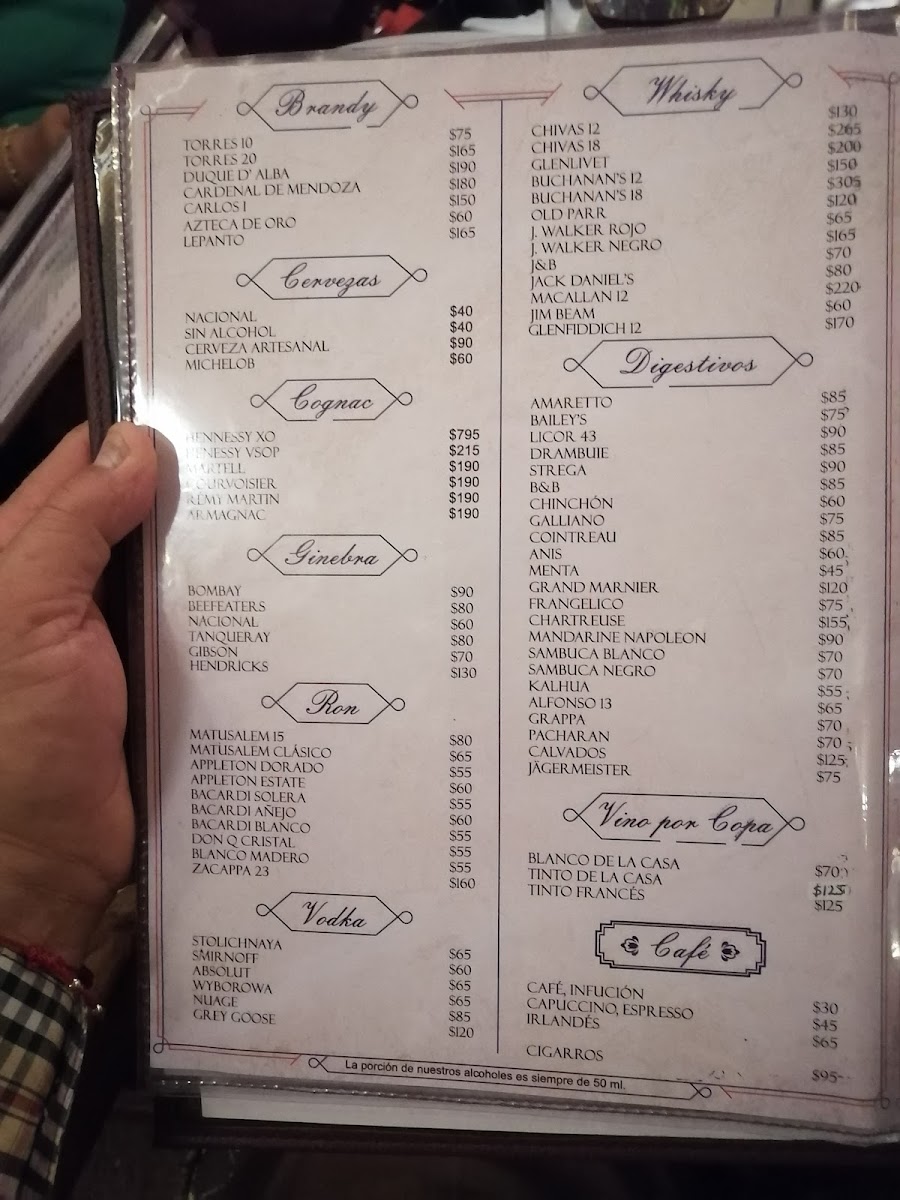 Brandy
TORRES 10 $75
TORRES 20 $165
DUQUE D' ALBA $190
CARDENAL DE MENDOZA $180
CARLOS I $150
AZTECA DE ORO $60
LEPANTO $165
Cervezas
NACIONAL $40
SIN ALCOHOL $40
CERVEZA ARTESANAL $90
MICHELOB $60
Cognac
HENNESSY XO $795
HENESSY VSOP $215
MARTELL $190
COURVOISIER $190
RÉMY MARTIN $190
ARMAGNAC $190
Ginebra
BOMBAY $90
BEEFEATERS $80
NACIONAL $60
TANQUERAY $80
GIBSON $70
HENDRICKS $130
Ron
MATUSALEM 15 $80
MATUSALEM CLÁSICO $65
APPLETON DORADO $55
APPLETON ESTATE $60
BACARDI SOLERA $55
BACARDI AÑEJO $60
BACARDI BLANCO $55
DON Q CRISTAL $55
BLANCO MADERO $55
ZACAPPA 23 $160
Vodka
STOLICHNAYA $65
SMIRNOFF $60
ABSOLUT $65
WYBOROWA $65
NUAGE $85
GREY GOOSE $120
Whisky
CHIVAS 12 $130
CHIVAS 18 $265
GLENLIVET $200
BUCHANAN'S 12 $150
BUCHANAN'S 18 $305
OLD PARR $120
J. WALKER ROJO $65
J. WALKER NEGRO $165
J&B $70
JACK DANIEL'S $80
MACALLAN 12 $220
JIM BEAM $60
GLENFIDDICH 12 $170
Digestivos
AMARETTO $85
BAILEY'S $75
LICOR 43 $90
DRAMBUIE $85
STREGA $90
B&B $85
CHINCHÓN $60
GALLIANO $75
COINTREAU $85
ANIS $60
MENTA $45
GRAND MARNIER $120
FRANGELICO $75
CHARTREUSE $155
MANDARINE NAPOLEON $90
SAMBUCA BLANCO $70
SAMBUCA NEGRO $70
KALHUA $55
ALFONSO 13 $65
GRAPPA $70
PACHARAN $70
CALVADOS $125
JÄGERMEISTER $75
Vino por Copa
BLANCO DE LA CASA $70
TINTO DE LA CASA $125
TINTO FRANCÉS $125
Café
CAFÉ, INFUCIÓN $30
CAPUCCINO, ESPRESSO $45
IRLANDÉS $65
CIGARROS $95
La porción de nuestros alcoholes es siempre de 50 ml.